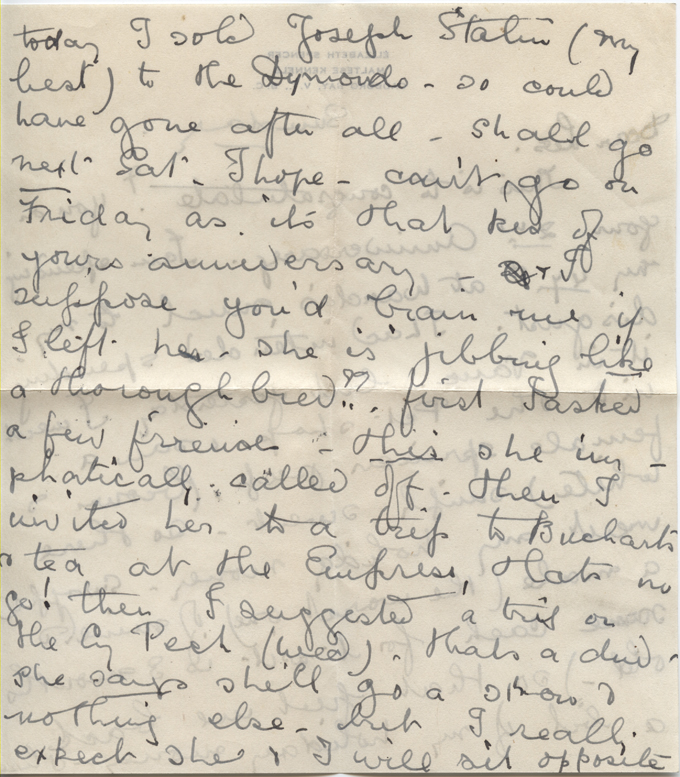 today I sold Joseph Stalin (my
best) to the Dymonds - so could
have gone after all - shall go
next Sat. I hope - can't go on
Friday as it's that kid of
yours anniversary - + I
suppose you'd brain me if
I left her - she is jibbing like
a thoroughbred!! first I asked
a few friends - this she im-
phatically called off - then I
invited her to a trip to Bucharts
+ tea at the Empress, thats no
go! then I suggested a trip on
the Cy Peck (wed) - thats a dud -
she says she'll go a show &
nothing else - but I really
expect she & I will sit opposite